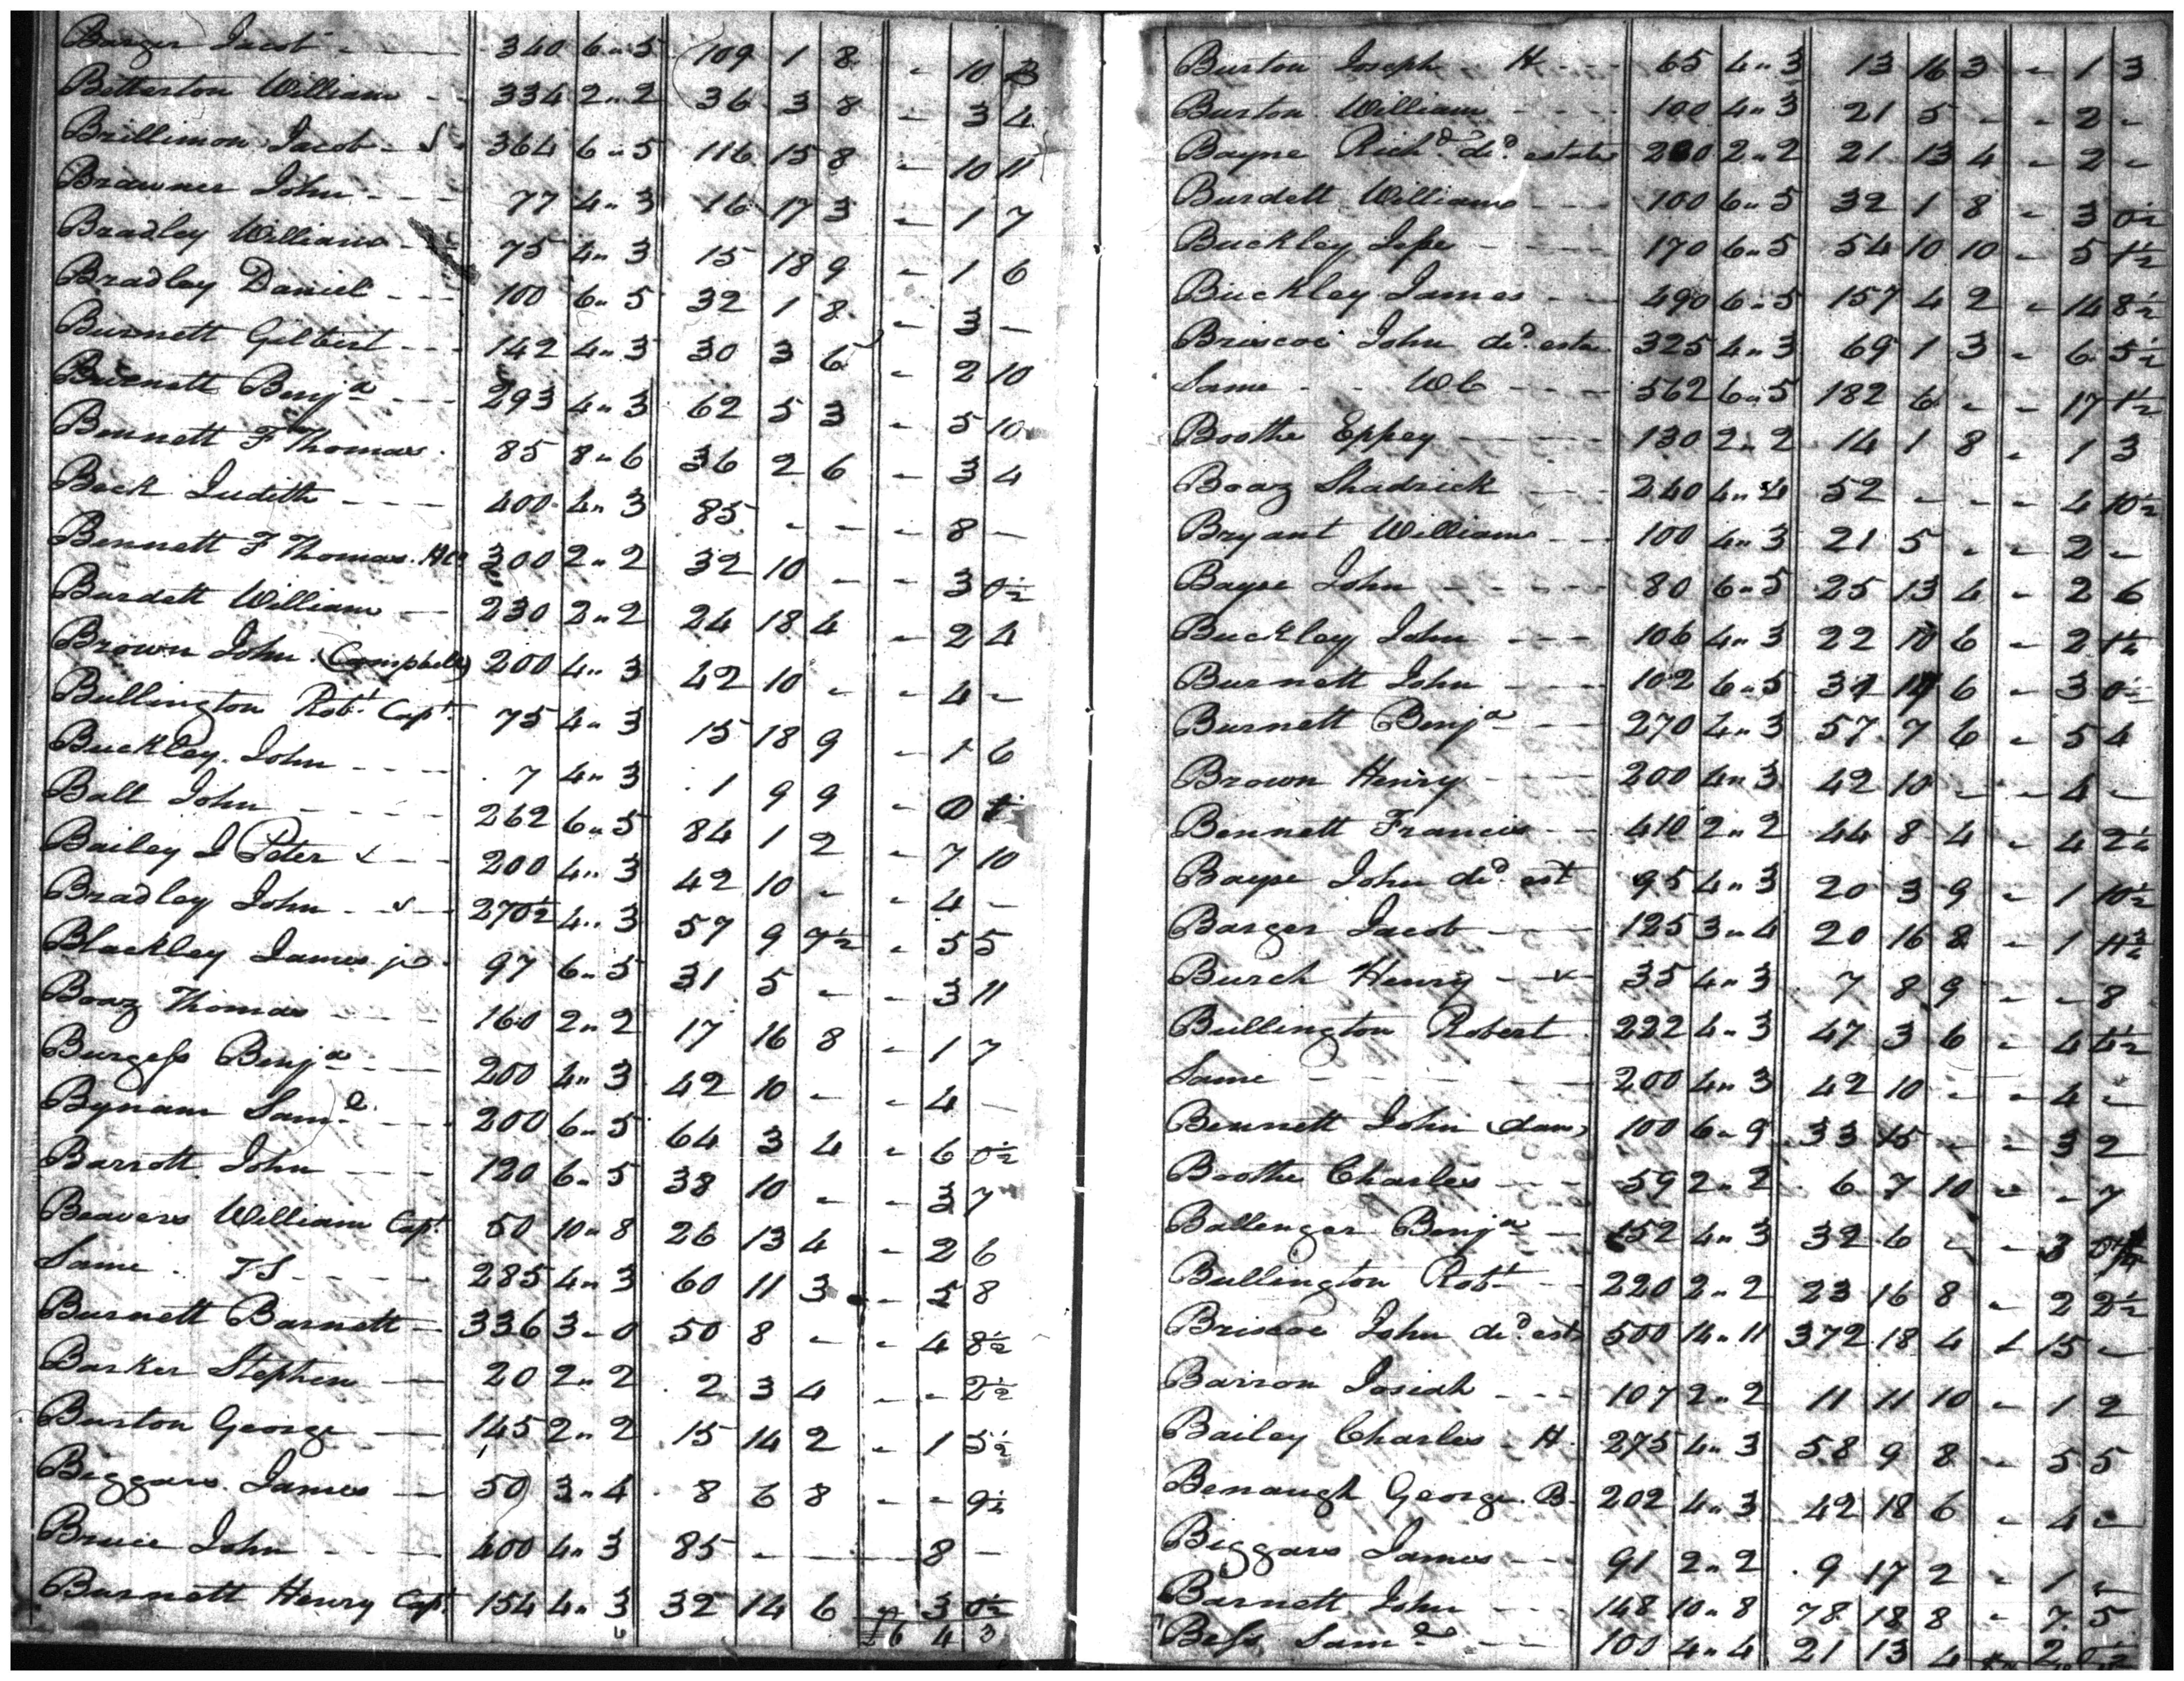 Barger Jacob 340 6"5 109 1 8 - 10 3
Betterton William 334 2"2 36 3 8 - 3 4
Brillimon Jacob 364 6"5 116 15 8 - 10 11
Brawner John 77 4"3 16 17 3 - 1 7
Bradley William 75 4"3 15 18 9 - 1 6
Bradley Daniel 100 6"5 32 1 8 - 3 -
Burnett Gilbert 142 4"3 30 3 6 - 2 10
Burnett Benja 293 4"3 62 5 3 - 5 10
Bennett F Thomas 85 8"6 36 2 6 - 3 4
Beck Judith 400 4"3 85 - - - 8 -
Bennett F Thomas 300 2"2 32 10 - - 3 0½
Burdett William 230 2"2 24 18 4 - 2 4
Brown John (Campbell) 200 4"3 42 10 - - 4 -
Bullington Robt Capt 75 4"3 15 18 9 - 1 6
Buckley John 7 4"3 1 9 9 - 0
Ball John 262 6"5 84 1 2 - 7 10
Bailey I Peter 200 4"3 42 10 - - 4 -
Bradley John 270½ 4"3 57 9 7½ - 5 5
Blackley James jr 97 6"5 31 5 - - 3 11
Boaz Thomas 160 2"2 17 16 8 - 1 7
Burgess Benja 200 4"3 42 10 - - 4 -
Bynam Saml 200 6"5 64 3 4 - 6 0½
Barrott John 120 6"5 38 10 - - 3 7
Beavers William Capt 50 10"8 26 13 4 - 2 6
Same TS 285 4"3 60 11 3 - 5 8
Burnett Barnett 336 3"0 50 8 - - 4 8½
Barker Stephen 20 2"2 2 3 4 - - 2½
Burton George 145 2"2 15 14 2 - 1 5½
Biggars James 50 3"4 8 6 8 - - 9½
Bruce John 400 4"3 85 - - - 8 -
Burnett Henry Capt 154 4"3 32 14 6 3 0½
£6 4 3
Burton Joseph H 65 4"3 13 16 3 - 1 3
Burton William 100 4"3 21 5 - - 2 -
Bayne Richd decd estate 200 2"2 21 13 4 - 2 -
Burdett William 100 6"5 32 1 8 - 3 0½
Buckley Jesse 170 6"5 54 10 10 - 5 1½
Buckley James 490 6"5 157 4 2 - 14 8½
Briscoe John decd esta 325 4"3 69 1 3 - 6 5½
Same WC 562 6"5 182 6 - - 17 1½
Boothe Eppey 130 2"2 14 1 8 - 1 3
Boaz Shadrick 240 4"4 52 - - - 4 10½
Bryant William 100 4"3 21 5 - - 2 -
Bayse John 80 6"5 25 13 4 - 2 6
Buckley John 106 4"3 22 10 6 - 2 1½
Burnett John 102 6"5 6 - 3 0½
Burnett Benja 270 4"3 57 7 6 - 5 4
Brown Henry 200 4"3 42 10 - - 4 -
Bennett Francis 410 2"2 44 8 4 - 4 2½
Bayse John decd est 95 4"3 20 3 9 - 1 10½
Barger Jacob 125 3"4 20 16 8 - 1
Burch Henry 35 4"3 7 8 9 - - 8
Bullington Robert 222 4"3 47 3 6 - 4 4½
Same 200 4"3 42 10 - - 4 -
Bennett John 100 6"9 33 15 - - 3 2
Boothe Charles 59 2"2 6 7 10 - - 7
Ballenger Benja 152 4"3 32 6 - - 3
Bullington Robt 220 2"2 23 16 8 - 2 2½
Briscoe John decd est 500 14"11 372 18 4 1 15 -
Barron Josiah 107 2"2 11 11 10 - 1 2
Bailey Charles H 275 4"3 58 9 8 - 5 5
Benaugh George B 202 4"3 42 18 6 - 4 -
Biggars James 91 2"2 9 17 2 - 1 -
Barnett John 148 10"8 78 18 8 - 7 5
Bess Saml 100 4"4 21 13 4 2